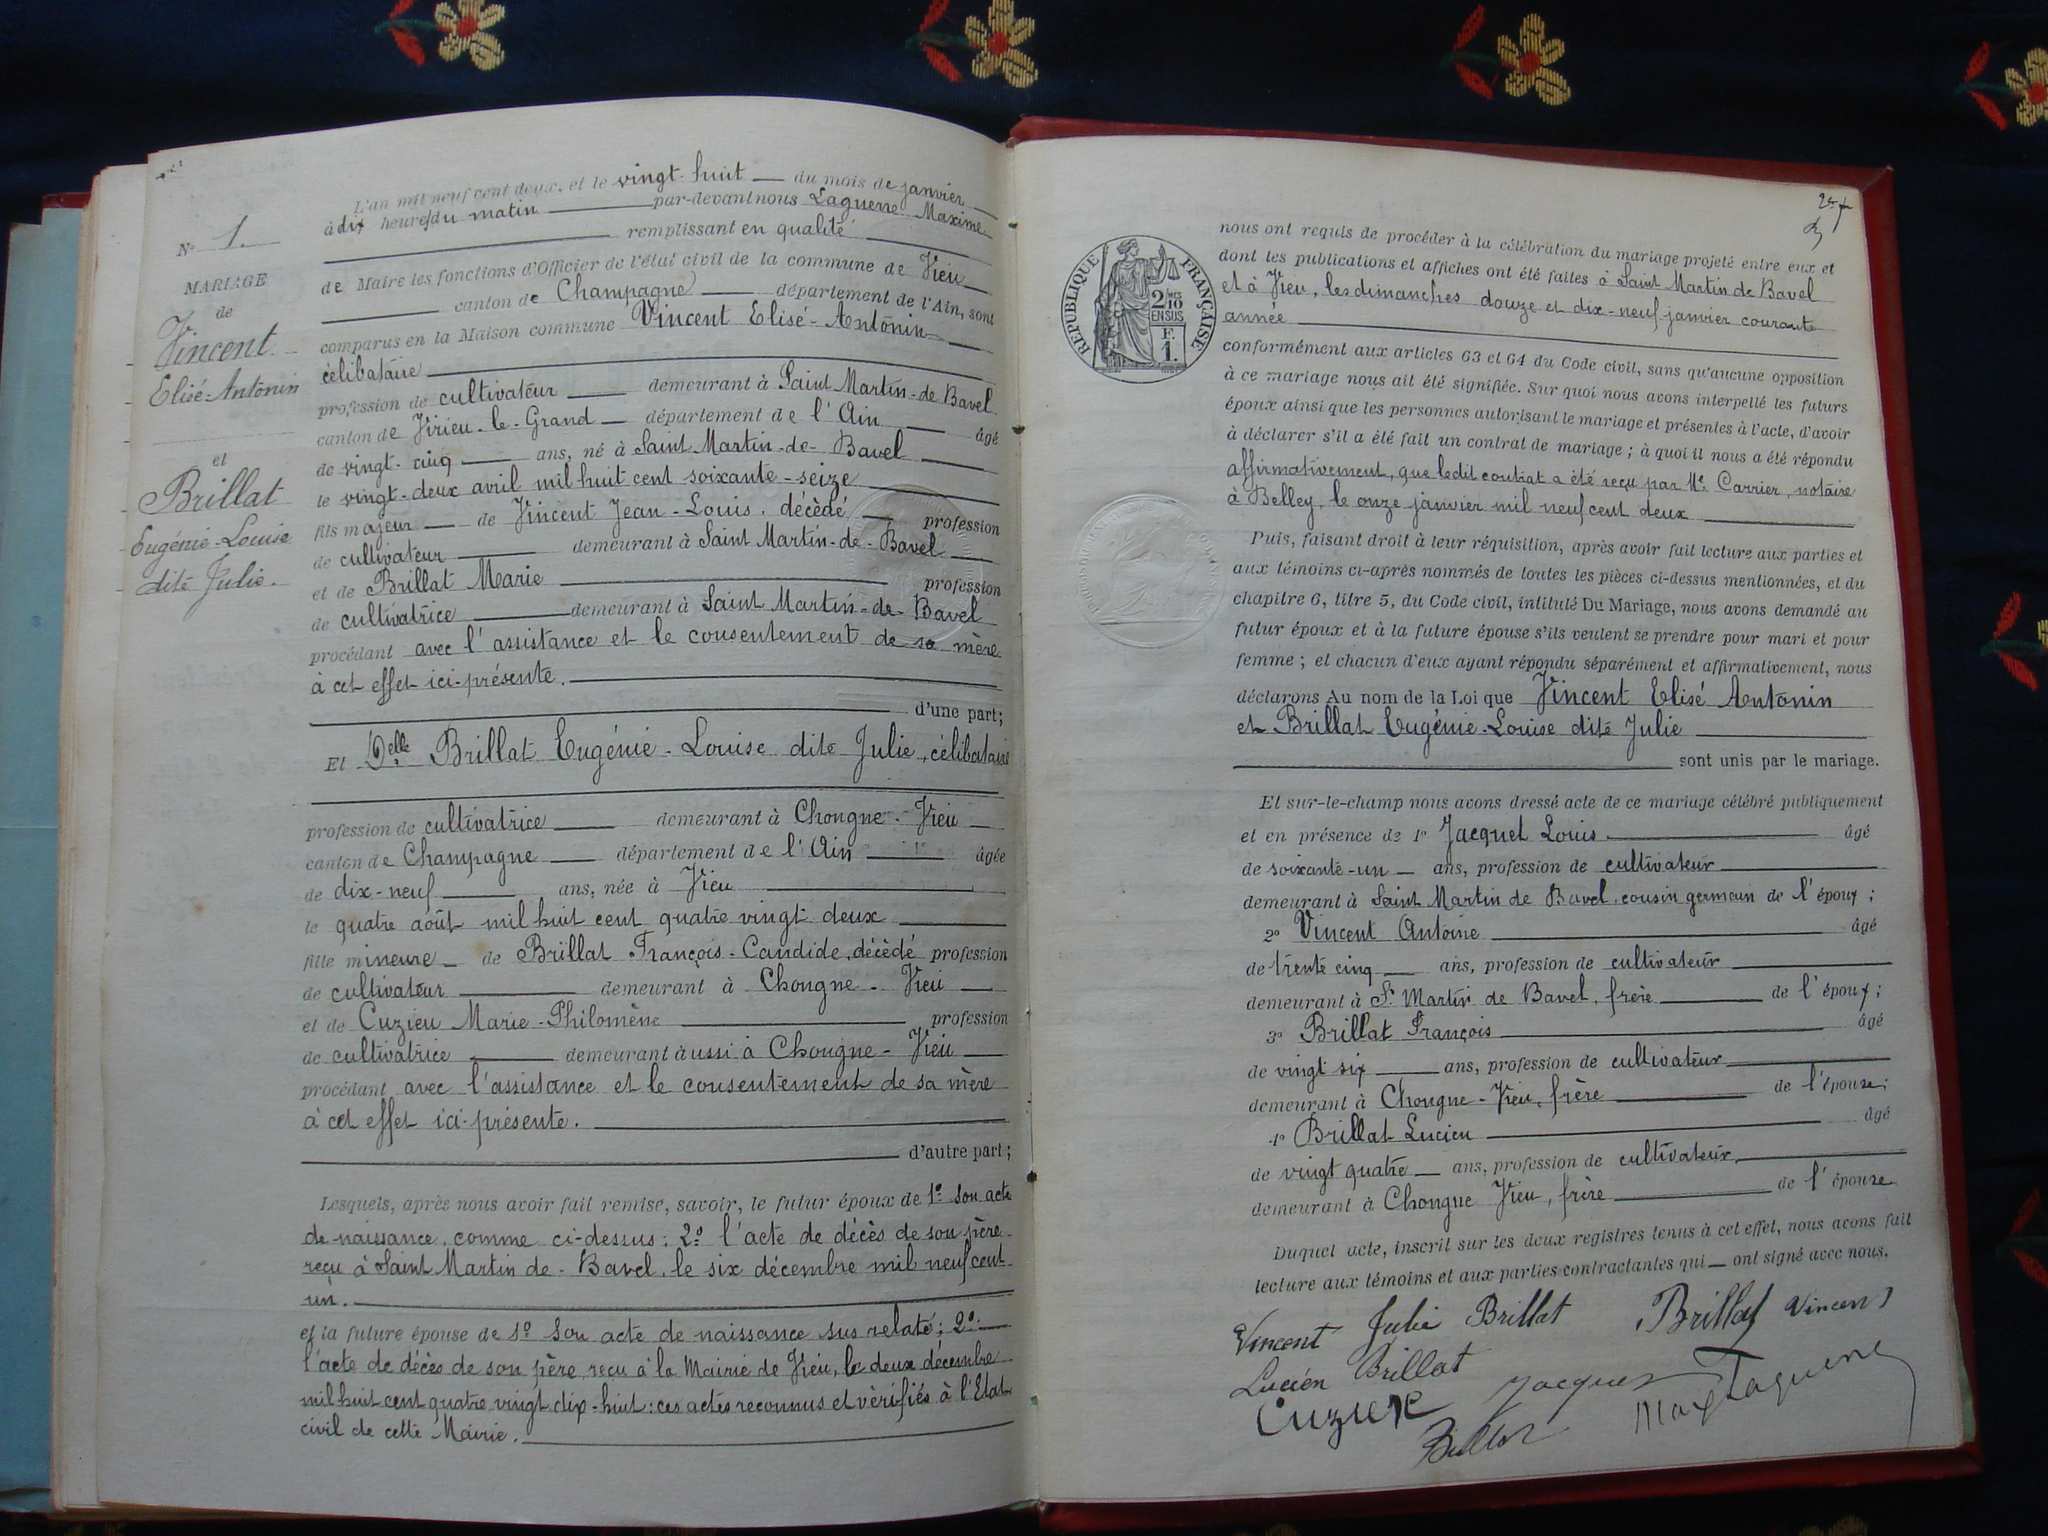 N° 1.
MARIAGE
de
Vincent
Elisé-Antonin
et
Brillat
Eugénie-Louise
dite Julie.
L'an mil neuf cent deux, et le vingt-huit du mois de janvier
à dix heures du matin par-devant nous Laguerre Maxime
remplissant en qualité
de Maire les fonctions d'Officier de l'état civil de la commune de Vieu
canton de Champagne département de l'Ain, sont
comparus en la Maison commune Vincent Elisé-Antonin
célibataire
profession de cultivateur demeurant à Saint Martin-de Bavel
canton de Virieu-le-Grand département de l'Ain âgé
de vingt-cinq ans, né à Saint Martin-de-Bavel
le vingt-deux avril mil huit cent soixante-seize
fils majeur de Vincent Jean-Louis, décédé profession
de cultivateur demeurant à Saint Martin-de-Bavel
et de Brillat Marie profession
de cultivatrice demeurant à Saint Martin-de-Bavel
procédant avec l'assistance et le consentement de sa mère
à cet effet ici-présente.
d'une part;
Et Delle Brillat Eugénie-Louise dite Julie, célibataire
profession de cultivatrice demeurant à Chongne-Vieu
canton de Champagne département de l'Ain âgée
de dix-neuf ans, née à Vieu
le quatre août mil huit cent quatre vingt deux
fille mineure de Brillat François-Candide, décédé profession
de cultivateur demeurant à Chongne-Vieu
et de Cuzieu Marie-Philomène profession
de cultivatrice demeurant aussi à Chongne-Vieu
procédant avec l'assistance et le consentement de sa mère
à cet effet ici-présente.
d'autre part;
Lesquels, après nous avoir fait remise, savoir, le futur époux de 1° son acte
de naissance, comme ci-dessus; 2° l'acte de décès de son père
reçu à Saint Martin de-Bavel, le six décembre mil neuf cent
un.
et la future épouse de 1° son acte de naissance sus relaté; 2°
l'acte de décès de son père, reçu à la Mairie de Vieu, le deux décembre
mil huit cent quatre vingt dix-huit: ces actes reconnus et vérifiés à l'Etat
civil de cette Mairie.
RÉPUBLIQUE FRANÇAISE
2 MES
10
EN SUS
F.
1.
nous ont requis de procéder à la célébration du mariage projeté entre eux et
dont les publications et affiches ont été faites à Saint Martin de Bavel
et à Vieu, les dimanches douze et dix-neuf janvier courante
année
conformément aux articles 63 et 64 du Code civil, sans qu'aucune opposition
à ce mariage nous ait été signifiée. Sur quoi nous avons interpellé les futurs
époux ainsi que les personnes autorisant le mariage et présentes à l'acte, d'avoir
à déclarer s'il a été fait un contrat de mariage; à quoi il nous a été répondu
affirmativement, que ledit contrat a été reçu par Me Carrier, notaire
à Belley, le onze janvier mil neuf cent deux
Puis, faisant droit à leur réquisition, après avoir fait lecture aux parties et
aux témoins ci-après nommés de toutes les pièces ci-dessus mentionnées, et du
chapitre 6, titre 5, du Code civil, intitulé Du Mariage, nous avons demandé au
futur époux et à la future épouse s'ils veulent se prendre pour mari et pour
femme; et chacun d'eux ayant répondu séparément et affirmativement, nous
déclarons Au nom de la Loi que Vincent Elisé Antonin
et Brillat Eugénie-Louise dite Julie
sont unis par le mariage.
Et sur-le-champ nous avons dressé acte de ce mariage célébré publiquement
et en présence de 1° Jacquet Louis âgé
de soixante-un ans, profession de cultivateur
demeurant à Saint Martin de Bavel, cousin germain de l'époux;
2° Vincent Antoine âgé
de trente cinq ans, profession de cultivateur
demeurant à St Martin de Bavel, frère de l'époux;
3° Brillat François âgé
de vingt six ans, profession de cultivateur
demeurant à Chongne-Vieu, frère de l'épouse;
4° Brillat Lucien âgé
de vingt quatre ans, profession de cultivateur
demeurant à Chongne Vieu, frère de l'épouse
Duquel acte, inscrit sur les deux registres tenus à cet effet, nous avons fait
lecture aux témoins et aux parties contractantes qui ont signé avec nous.
Vincent Julie Brillat Brillat Vincent
Lucien Brillat Jacquet Max Laguerre
Cuzieu
Brillat